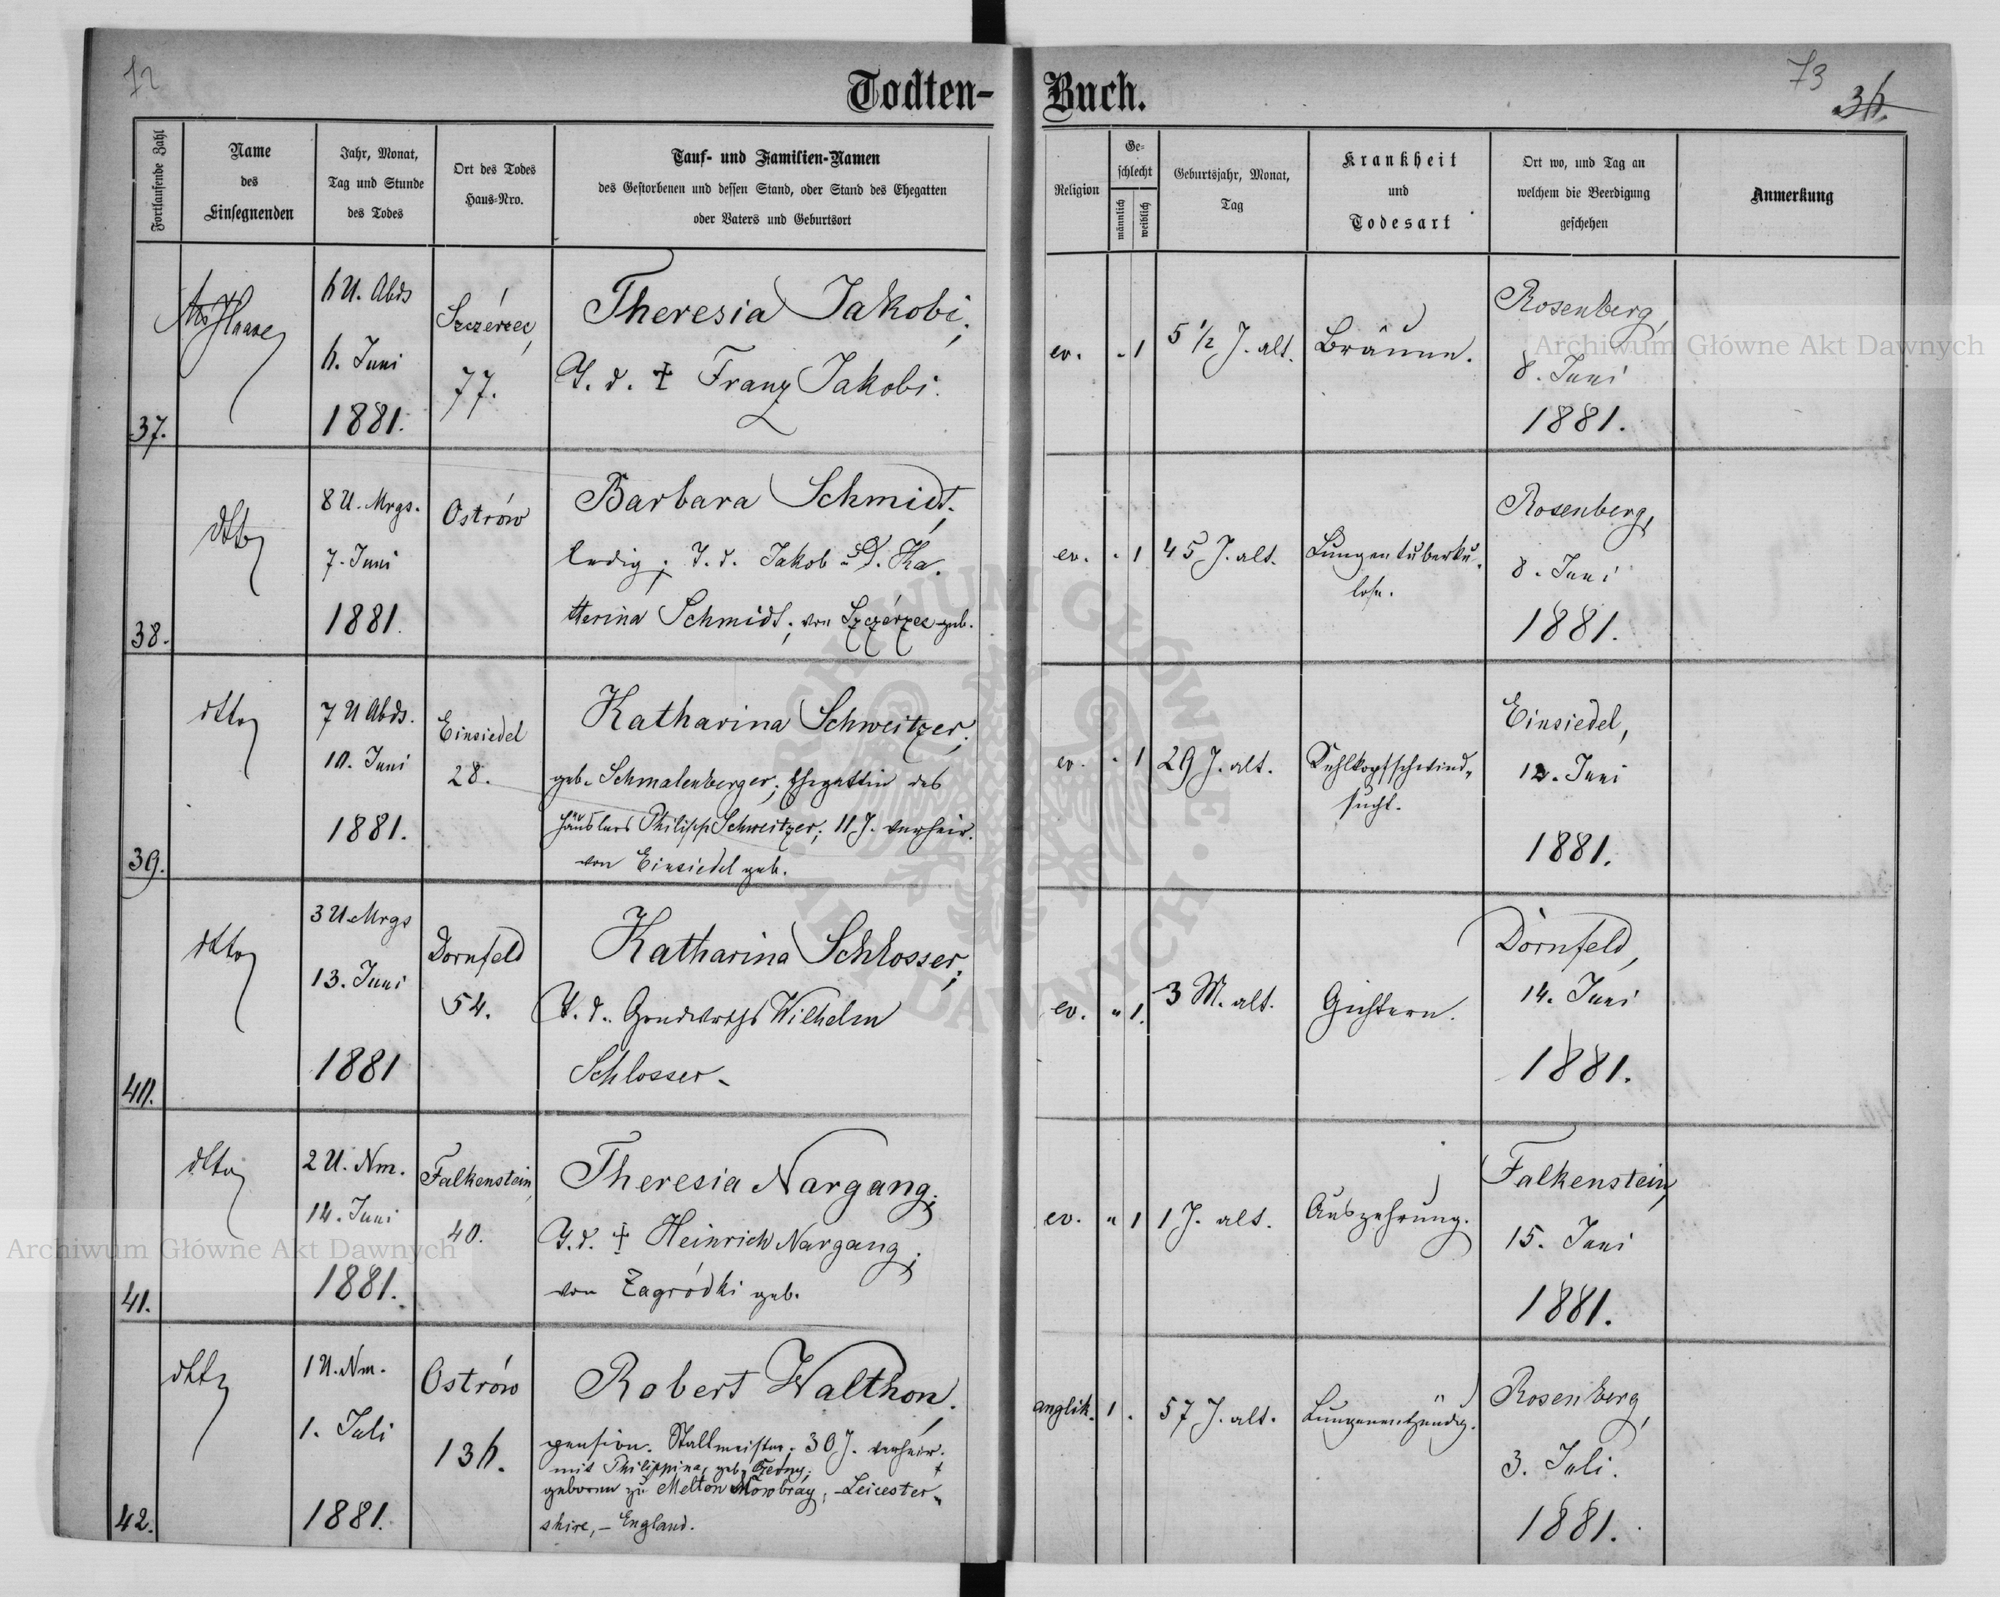 72
Todten-
Fortlaufende Zahl
Name
des
Einsegnenden
Jahr, Monat,
Tag und Stunde
des Todes
Ort des Todes
Haus-Nro.
Tauf- und Familien-Namen
des Gestorbenen und dessen Stand, oder Stand des Ehegatten
oder Vaters und Geburtsort
37.
6 U. Abds
6. Juni
1881.
Szczérzec,
77.
Theresia Jakobi,
T. d. † Franz Jakobi.
38.
dtto
8 U. Mrgs.
7. Juni
1881.
Ostrów
Barbara Schmidt,
ledig; T. d. Jakob u. d. Ka-
therina Schmidt; von Szczérzec geb.
39.
dtto
7 U Abds.
10. Juni
1881.
Einsiedel
28.
Katharina Schweitzer,
geb. Schmalenberger; Ehegattin des
Häuslers Philipp Schweitzer; 11 J. verheir.
von Einsiedel geb.
40.
dtto
3 U. Mrgs
13. Juni
1881
Dornfeld
54.
Katharina Schlosser,
T. d. Grundwirths Wilhelm
Schlosser.
41.
dtto
2 U. Nm.
14. Juni
1881.
Falkenstein,
40.
Theresia Nargang;
T. d. † Heinrich Nargang;
von Zagródki geb.
42.
dtto
1 U. Nm.
1. Juli
1881.
Ostrów
136.
Robert Walthon,
pension. Stallmeister. 30 J. verheir.
mit Philippina, geb.
geboren zu Melton Mowbray, Leicester-
shire, – England.
73
36.
Buch.
Religion
Ge-
schlecht
männlich
weiblich
Geburtsjahr, Monat,
Tag
Krankheit
und
Todesart
Ort wo, und Tag an
welchem die Beerdigung
geschehen
Anmerkung
ev. " 1
5 1/2 J. alt.
Bräune.
Rosenberg,
8. Juni
1881.
ev. " 1
45 J. alt.
Lungentuberku-
lose.
Rosenberg,
8. Juni
1881.
ev. " 1
29 J. alt.
Kehlkopfschwind-
sucht.
Einsiedel,
12. Juni
1881.
ev. " 1.
3 M. alt.
Gichtern.
Dornfeld,
14. Juni
1881.
ev. " 1
1 J. alt.
Auszehrung.
Falkenstein,
15. Juni
1881.
anglik. 1 .
57 J. alt.
Lungenentzündg.
Rosenberg,
3. Juli.
1881.
Archiwum Główne Akt Dawnych
Archiwum Główne Akt Dawnych
ARCHIWUM GŁÓWNE • AKT DAWNYCH •